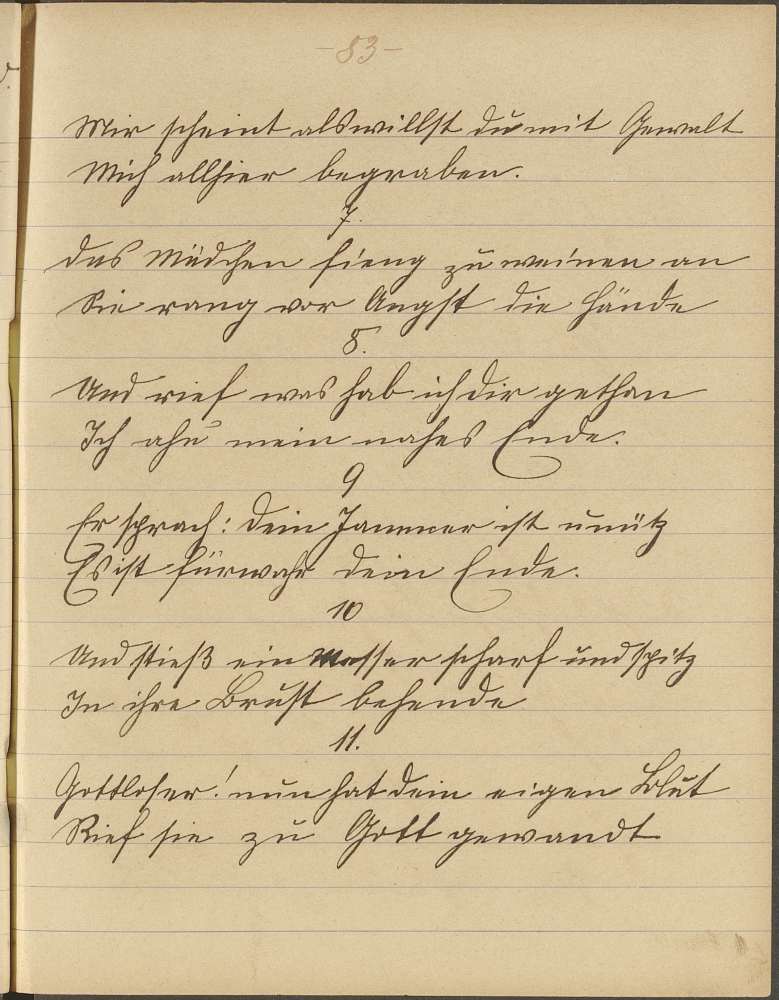 -83-
Mir scheint als willst du mit Gewalt
Mich allhier begraben.
7.
Das Mädchen fieng zu weinen an
Sie rang vor Angst die Hände
8.
Und rief was hab ich dir gethan
Ich ahn mein nahes Ende.
9
Er sprach: dein Jammer ist unütz
Es ist fürwahr dein Ende.
10
Und stieß ein Messer scharf und spitz
In ihre Brust behende
11.
Gottloser! nun hat dein eigen Blut
Rief sie zu Gott gewandt